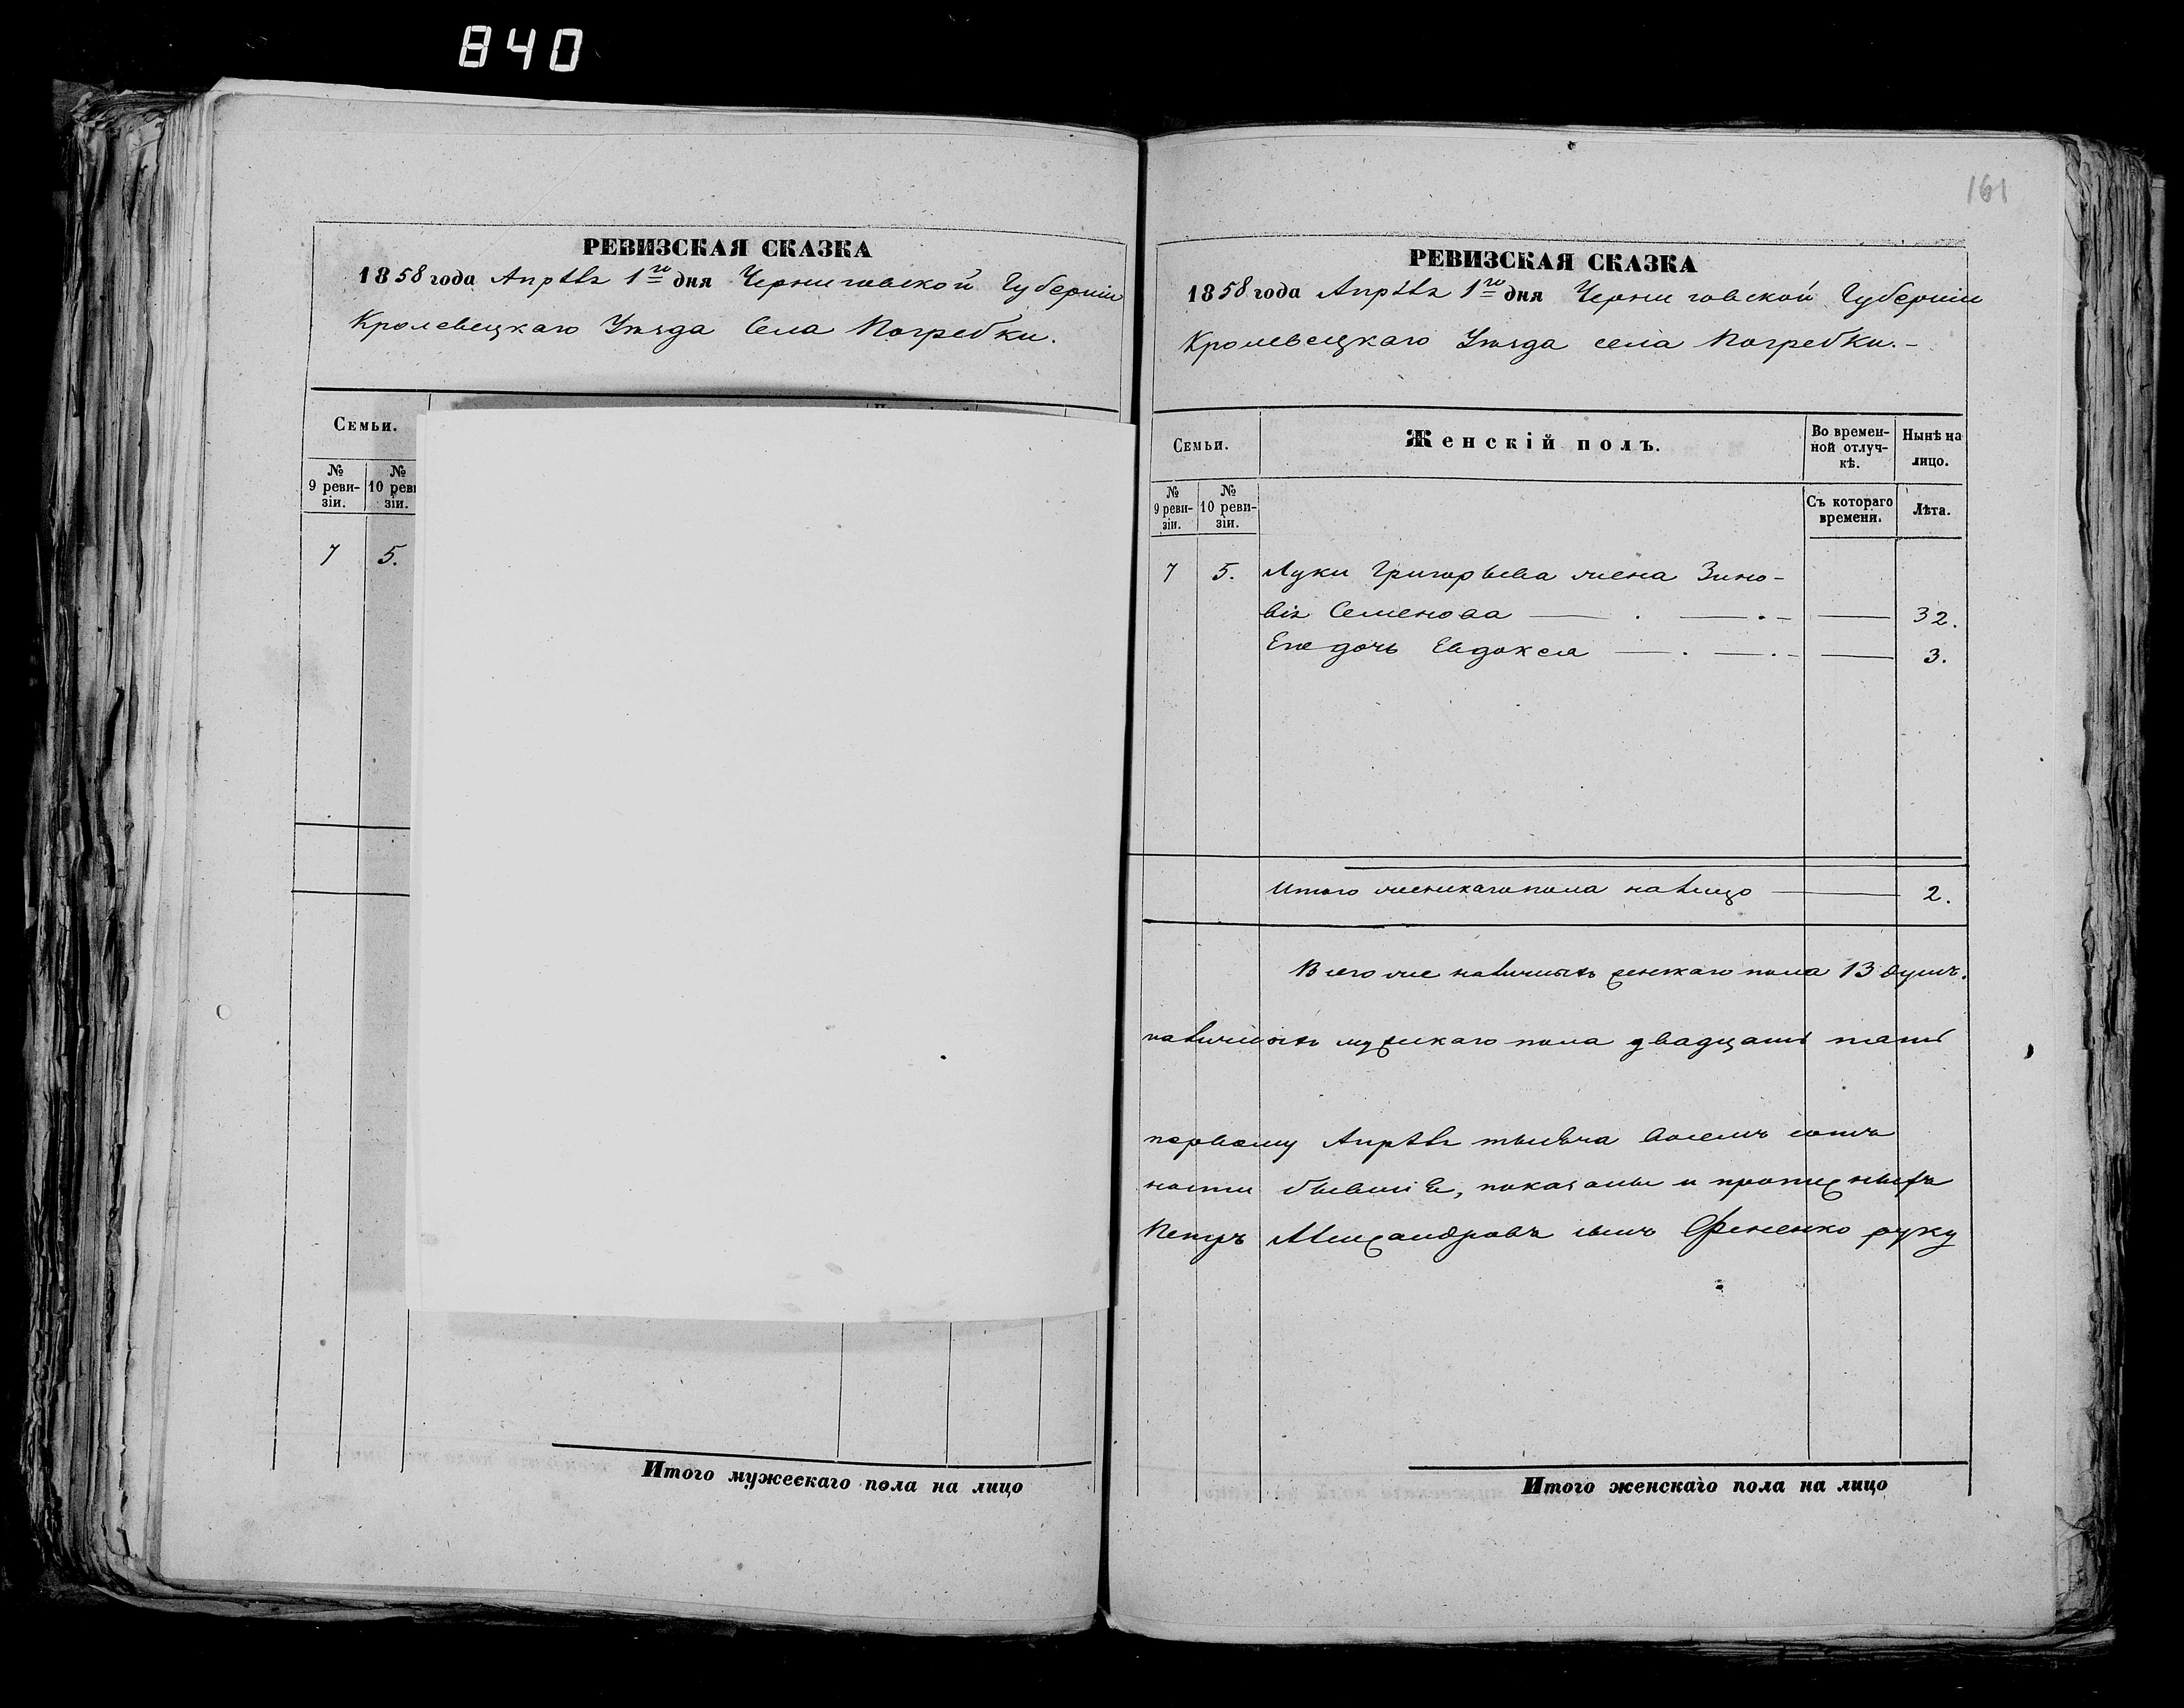 840
РЕВИЗСКАЯ СКАЗКА
1858 года Апрѣля 1го дня Черниговской Губерніи
Кролевецкаго Уѣзда Села Погребки.
Семьи.
№ 9 реви-зіи.
№ 10 реви зіи.
7 5.
Итого мужескаго пола на лицо
161
РЕВИЗСКАЯ СКАЗКА
1858 года Апрѣля 1го дня Черниговской Губерніи
Кролевецкаго Уѣзда села Погребки.-
Семьи.
Женскій полъ.
Во времен-
ной отлуч-
кѣ.
Нынѣ на
лицо.
№
9 реви-
зіи.
№
10 реви-
зіи.
Съ котораго
времени.
Лѣта.
7 5. Луки Григорьева жена Зино-
вія Семенова 32.
Его дочь Евдокея 3.
Итого женскаго пола на лицо 2.
Всего же наличныхъ женскаго пола 13 душъ.
наличныхъ мужескаго пола двадцать пять
первому Апрѣля тысяча восемь сотъ
ности бывшіе, показаны и
Петръ Александровъ сынъ Фененко руку
Итого женскаго пола на лицо